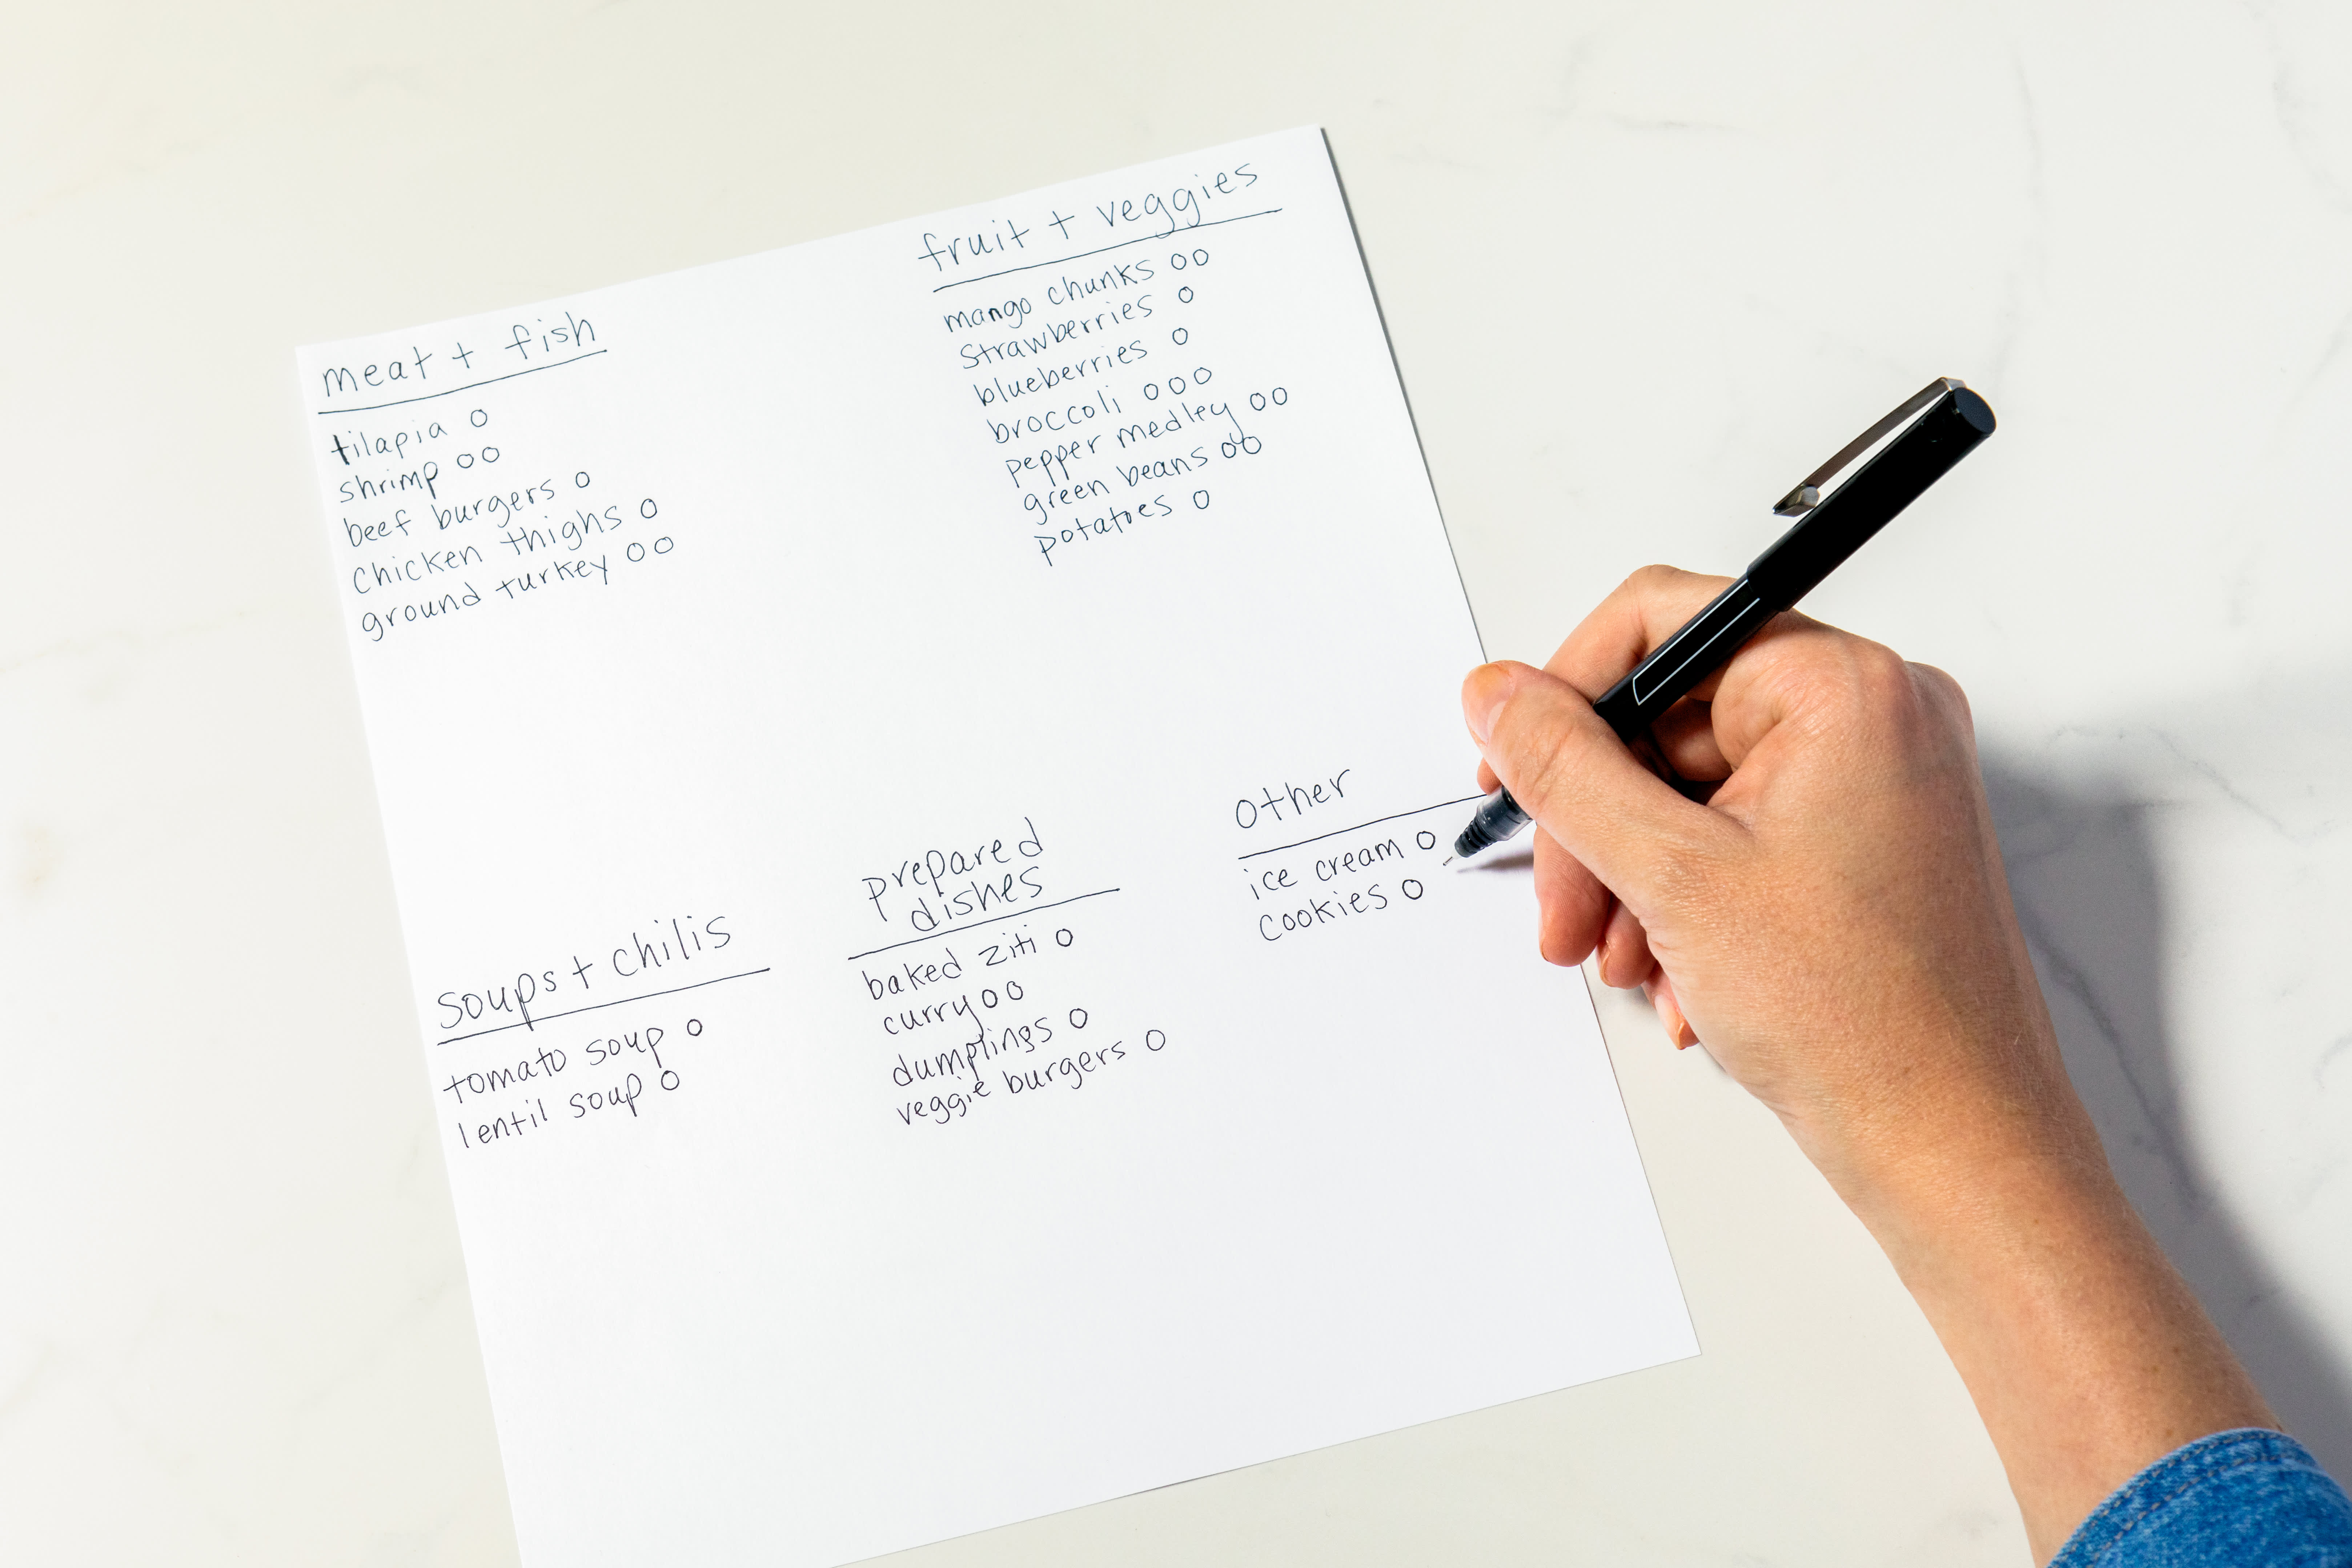 meat + fish
tilapia O
shrimp O O
beef burgers O
chicken thighs O
ground turkey O O
fruit + veggies
mango chunks O O
strawberries O
blueberries O
broccoli O O O
pepper medley O O
green beans O O
potatoes O
soups + chilis
tomato soup O
lentil soup O
prepared
dishes
baked ziti O
curry O O
dumplings O
veggie burgers O
other
ice cream O
cookies O